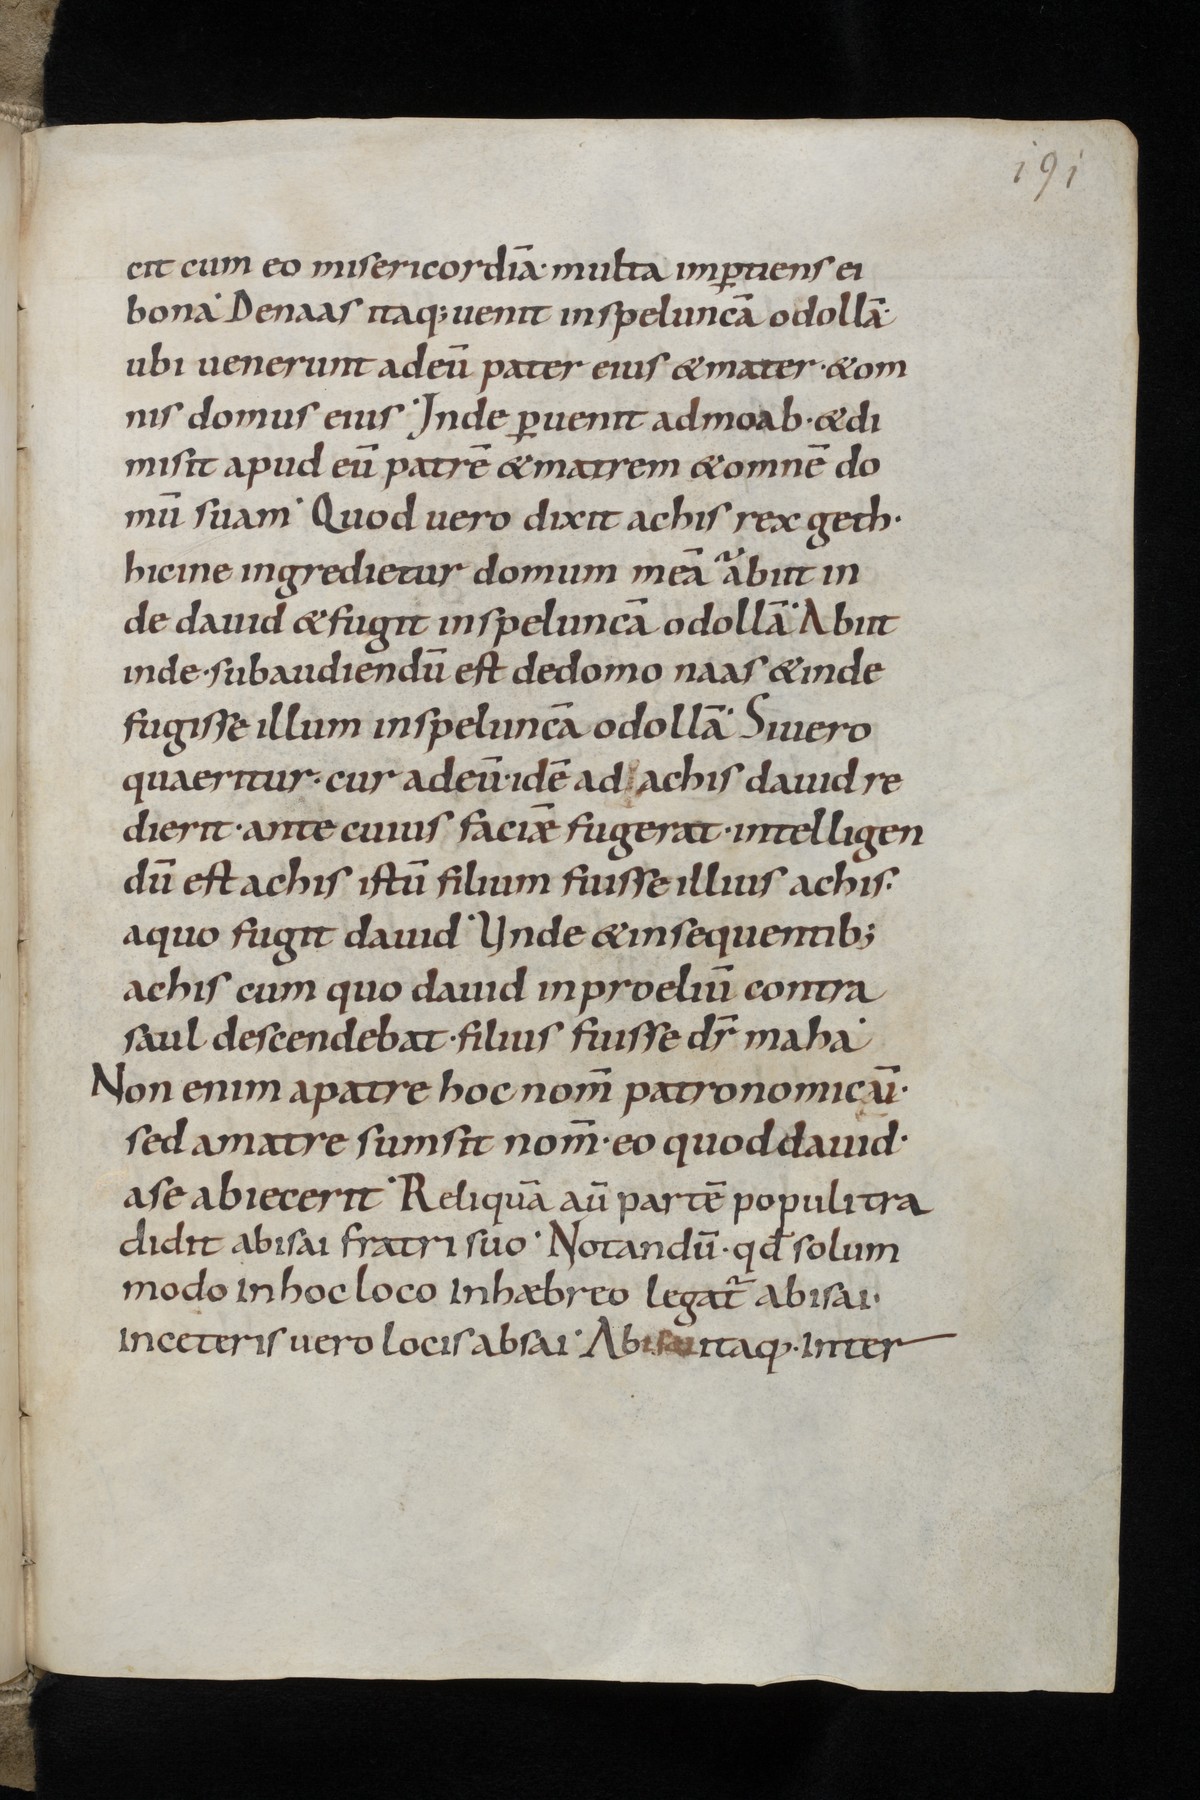 191
cit cum eo misericordiā· multa imꝑtiens ei
bona· De naas itaq; uenit in speluncā odollā·
ubi uenerunt ad eū pater eius & mater· & om
nis domus eius· Inde ꝑuenit ad moab· & di
misit apud eū patrē & matrem & omnē do
mū suam· Quod uero dixit achis rex geth·
hicine ingredietur domum meā abiit in
de dauid & fugit in speluncā odollā· Abiit
inde· subaudiendū est de domo naas & inde
fugisse illum in speluncā odollā· Si uero
quaeritur· cur ad eū· idē ad achis dauid re
dierit· ante cuius faciē fugerat· intelligen
dū est achis istū filium fuisse illius achis·
a quo fugit dauid· Unde & in sequentib;
achis cum quo dauid in proeliū contra
saul descendebat· filius fuisse dr̄ maha·
Non enim a patre hoc nom̄ patronomicū·
sed a matre sumsit nom̄· eo quod dauid·
a se abiecerit· Reliquā aū partē populi tra
didit abisai fratri suo· Notandū· qđ solum
modo in hoc loco in hæbreo legat̄ abisai·
in ceteris uero locis absai· Abisai itaq;· inter